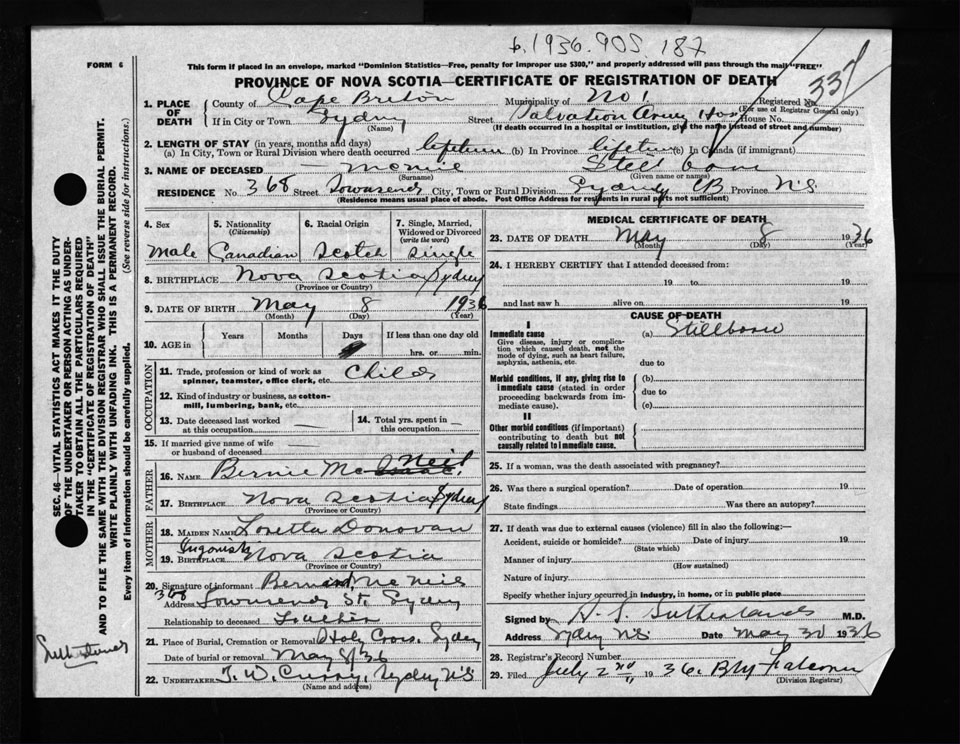 b. 1936. 905. 187
FORM 6
This form if placed in an envelope, marked "Dominion Statistics—Free, penalty for improper use $300," and properly addressed will pass through the mail "FREE"
PROVINCE OF NOVA SCOTIA—CERTIFICATE OF REGISTRATION OF DEATH
337
1. PLACE OF DEATH County of Cape Breton Municipality of No 1 Registered No.
(For use of Registrar General only)
If in City or Town Sydney Street Salvation Army Hos House No.
(Name) (If death occurred in a hospital or institution, give the name instead of street and number)
2. LENGTH OF STAY (in years, months and days)
(a) In City, Town or Rural Division where death occurred lifetime (b) In Province lifetime (c) In Canada (if immigrant)
3. NAME OF DECEASED Stillborn
(Surname) (Given name or names)
RESIDENCE No. 368 Street Townsend City, Town or Rural Division Sydney CB Province N.S.
(Residence means usual place of abode. Post Office Address for residents in rural parts not sufficient)
4. Sex 5. Nationality (Citizenship) 6. Racial Origin 7. Single, Married, Widowed or Divorced (write the word)
Male Canadian Scotch Single
8. BIRTHPLACE Nova Scotia Sydney
(Province or Country)
9. DATE OF BIRTH May 8 1936
(Month) (Day) (Year)
10. AGE in Years Months Days If less than one day old
hrs. or min.
OCCUPATION
11. Trade, profession or kind of work as spinner, teamster, office clerk, etc. Child
12. Kind of industry or business, as cotton-mill, lumbering, bank, etc.
13. Date deceased last worked at this occupation 14. Total yrs. spent in this occupation
15. If married give name of wife or husband of deceased
FATHER
16. NAME Bernie McNeil
17. BIRTHPLACE Nova Scotia Sydney
(Province or Country)
MOTHER
18. MAIDEN NAME Loretta Donovan
Ingonish
19. BIRTHPLACE Nova Scotia
(Province or Country)
20. Signature of informant Bernard McNeil
Address 368 Townsend St. Sydney
Relationship to deceased Father
21. Place of Burial, Cremation or Removal Holy Cross, Sydney
Date of burial or removal May 8/36
22. UNDERTAKER T. W. Curry, Sydney N.S.
(Name and address)
MEDICAL CERTIFICATE OF DEATH
23. DATE OF DEATH May 8 1936
(Month) (Day) (Year)
24. I HEREBY CERTIFY that I attended deceased from:
19 to 19
and last saw h alive on 19
CAUSE OF DEATH
I
Immediate cause (a) Stillborn
Give disease, injury or complication which caused death, not the mode of dying, such as heart failure, asphyxia, asthenia, etc.
due to
Morbid conditions, if any, giving rise to immediate cause (stated in order proceeding backwards from immediate cause).
(b)
due to
(c)
II
Other morbid conditions (if important) contributing to death but not causally related to immediate cause.
25. If a woman, was the death associated with pregnancy?
26. Was there a surgical operation? Date of operation 19
State findings Was there an autopsy?
27. If death was due to external causes (violence) fill in also the following:—
Accident, suicide or homicide? Date of injury 19
(State which)
Manner of injury
(How sustained)
Nature of injury
Specify whether injury occurred in industry, in home, or in public place
Signed by H S Sutherland M.D.
Address Sydney N.S. Date May 30 1936
28. Registrar's Record Number
29. Filed July 2nd 1936. Falconer
(Division Registrar)
SEC. 46—VITAL STATISTICS ACT MAKES IT THE DUTY
OF THE UNDERTAKER OR PERSON ACTING AS UNDER-
TAKER TO OBTAIN ALL THE PARTICULARS REQUIRED
IN THE "CERTIFICATE OF REGISTRATION OF DEATH"
AND TO FILE THE SAME WITH THE DIVISION REGISTRAR WHO SHALL ISSUE THE BURIAL PERMIT.
WRITE PLAINLY WITH UNFADING INK. THIS IS A PERMANENT RECORD.
Every item of information should be carefully supplied. (See reverse side for instructions.)